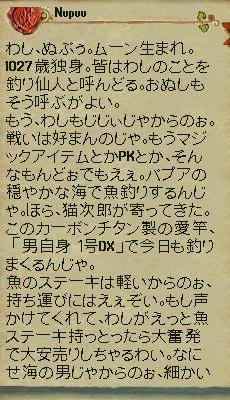 Nupuu
わし、ぬぷぅ。ムーン生まれ。
1027歳独身。皆はわしのことを
釣り仙人と呼んどる。おぬしも
そう呼ぶがよい。
もう、わしもじじいじゃからのぉ。
戦いは好まんのじゃ。もうマジ
ックアイテムとかPKとか、そん
なもんどぉでもえぇ。パプアの
穏やかな海で魚釣りするんじ
ゃ。ほら、猫次郎が寄ってきた。
このカーボンチタン製の愛竿、
「男自身 1号DX」で今日も釣り
まくるんじゃ。
魚のステーキは軽いからのぉ、
持ち運びにはえぇぞい。もし声
かけてくれて、わしがえっと魚
ステーキ持っとったら大奮発
で大安売りしちゃるわい。なに
せ海の男じゃからのぉ、細かい